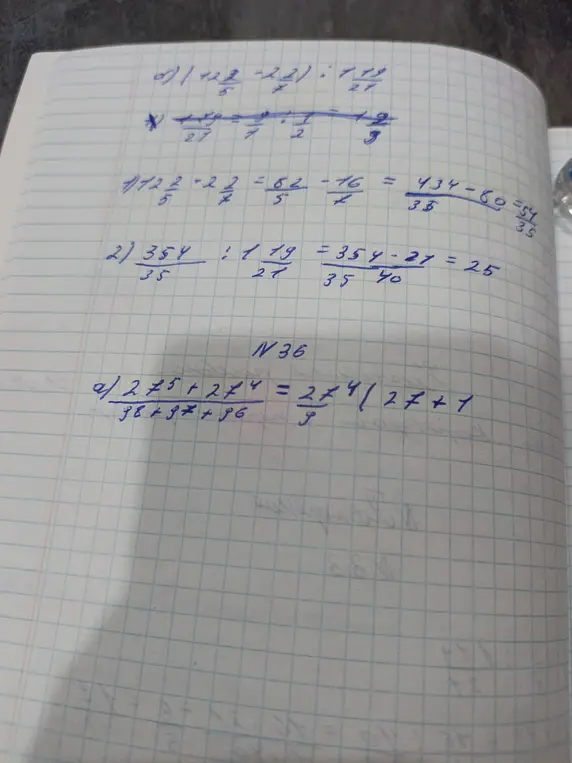 б) (12 2/5 - 2 2/7) : 1 19/21
1 19/21 = 9/1 : 1/2 = 1 9/9
1) 12 2/5 - 2 2/7 = 62/5 - 16/7 = 434 - 80/35 = 54/35
2) 354/35 : 1 19/21 = 354 - 21/35 40 = 25
N 36
а) 27⁵ + 27⁴/98 + 97 + 96 = 27⁴/9 (27 + 1